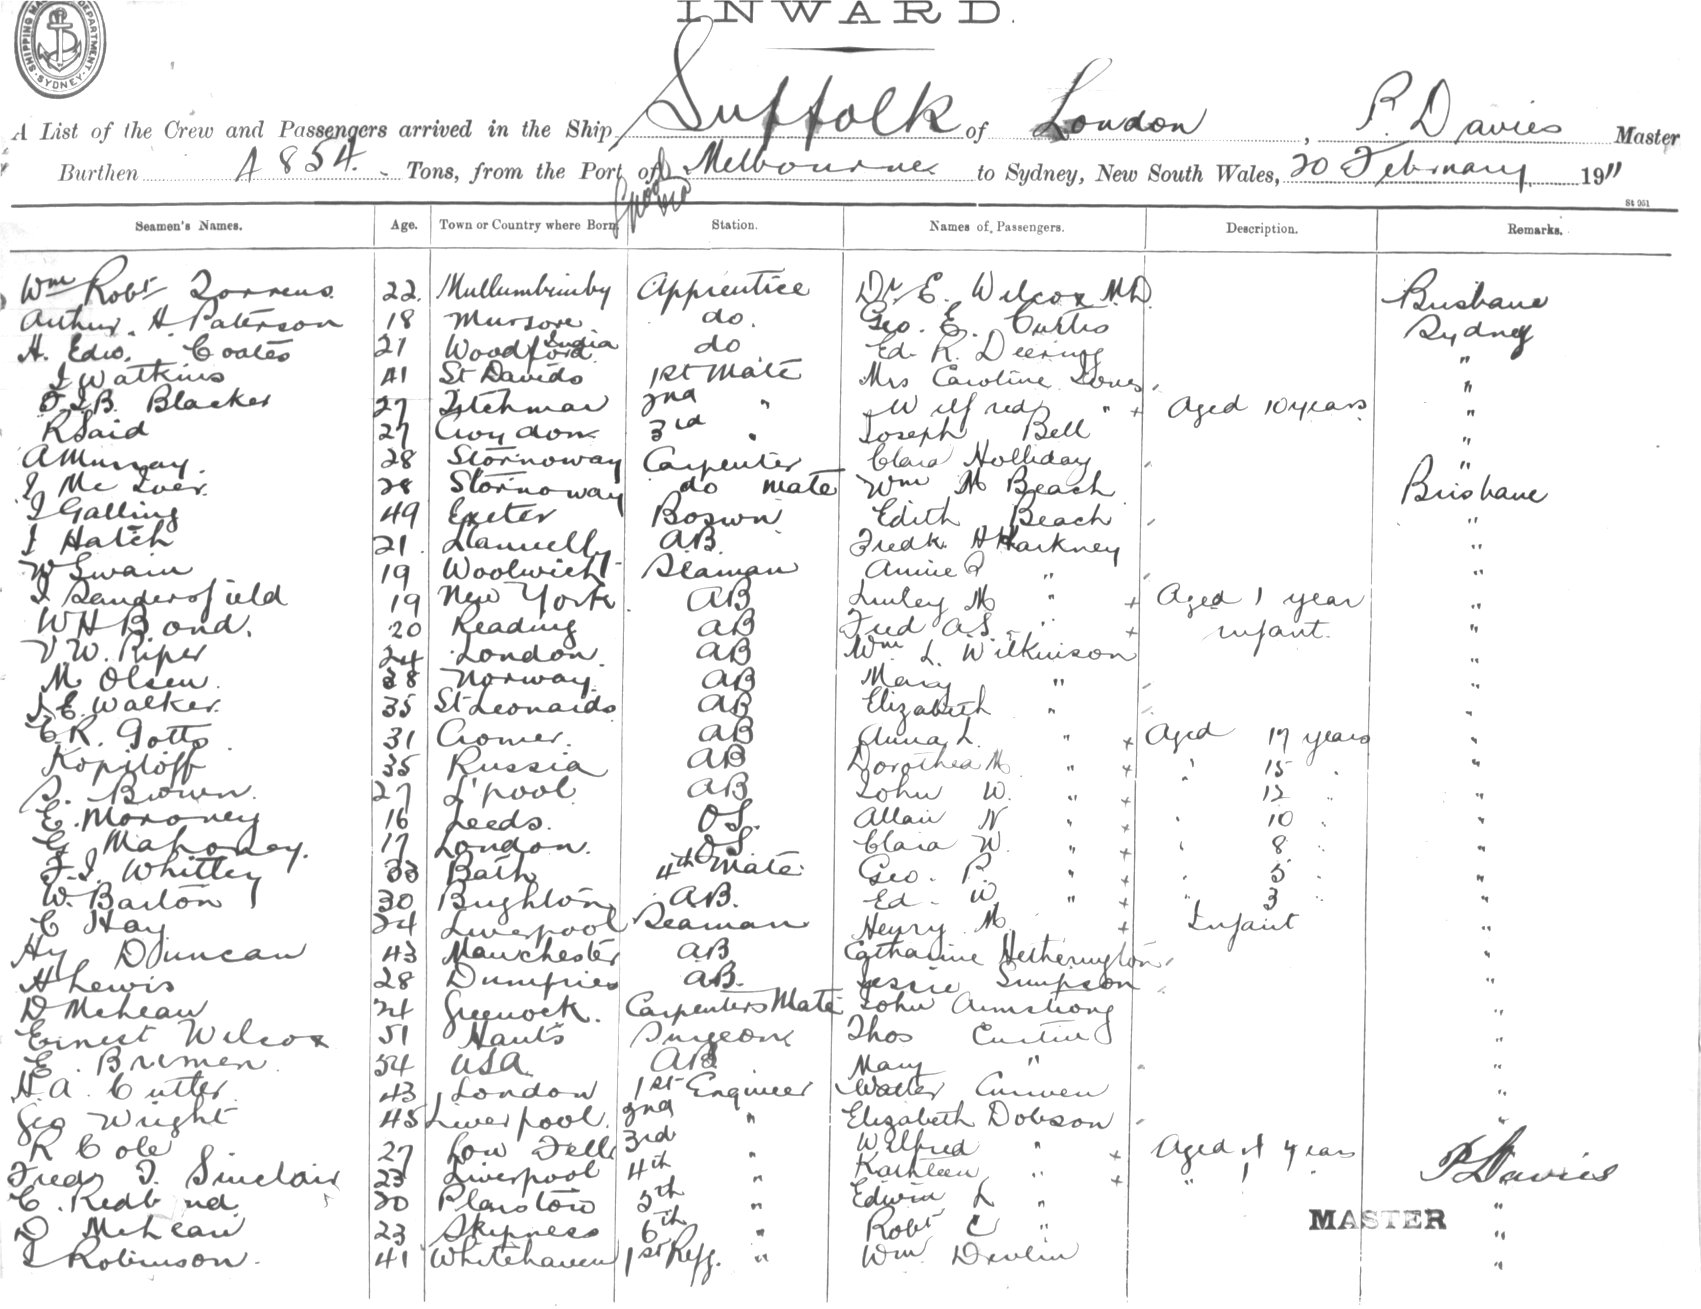 INWARD.
SHIPPING MA DEPARTMENT. SYDNEY
A List of the Crew and Passengers arrived in the Ship Suffolk of London, P. Davies Master
Burthen 4854. Tons, from the Port of Melbourne to Sydney, New South Wales, 20 February 1911
St 951
Seamen's Names. Age. Town or Country where Born Station. Names of Passengers. Description. Remarks.
Wm Robt Torrens 22. Mullumbimby Apprentice Dr E. Wilcox M.D Brisbane
Arthur. H. Paterson 18 do. Geo. E. Curtis Sydney
H. Edw. Coates 21 Woodford do Ed. R. Deering "
India
J Watkins 41 St Davids 1st Mate Mrs Caroline Jones "
F.J.B. Blacker 27 Itchmar 2nd " Wilfred " + Aged 10 years "
R Said 27 Croydon 3rd " Joseph Bell "
A Murray. 28 Stornoway Carpenter Clara Holliday "
J Mc Iver. 28 Stornoway do mate Wm M Beach Brisbane
J Galling 49 Exeter Boswn Edith Beach "
J Hatch 21. Llanelly A.B. Fredk. H Harkney "
W Swain 19 Woolwich Seaman Annie " "
J Sandersfield 19 New York. AB Linley M " + Aged 1 year "
W H Bond. 20 Reading AB Fred A.S. " + infant. "
V W. Piper 24 London. AB Wm L. Wilkinson "
M Olsen 38 Norway. AB Mary " "
J. E. Walker. 35 St Leonards AB Elizabeth " "
C. R. Gotts 31 Cromer. AB Anna L. " + Aged 17 years "
Kopiloff 35 Russia AB Dorothea M " + " 15 " "
S. Brown. 27 L'pool AB John W. " + 12 " "
E. Moroney 16 Leeds. OS. Allan N " + " 10 " "
G Mahoney. 17 London. OS Clara W. " + " 8 " "
F. J. Whitley 33 Bath 4th Mate Geo. P. " + " 5 " "
W. Barton 30 Brighton A.B. Ed. W " + " 3 " "
C Hay 24 Liverpool Seaman Henry M " + Infant "
Hy Duncan 43 Manchester AB Catharine Hetherington "
H Lewis 28 Dumfries AB. Jessie Simpson
D McLean 24 Greenock. Carpenters Mate John Armstrong "
Ernest Wilcox 51 Hants Surgeon Thos Curtin "
E. Bremen 34 USA AB Mary " "
H. A. Cutter. 43 London 1st Engineer Walter Curwen "
Geo Wright 45 Liverpool. 2nd " Elizabeth Dobson "
R Cole 27 Low Fell 3rd " Wilfred " + Aged 4 years
Fredk J. Sinclair 23 Liverpool 4th " Kathleen " + " 1 P Davies
C. 20 Plaistow 5th " Edwin L " "
MASTER
D McLean 23 Skipness 6th " Robt C " "
J Robinson. 41 Whitehaven 1st Refg. " Wm Devlin "